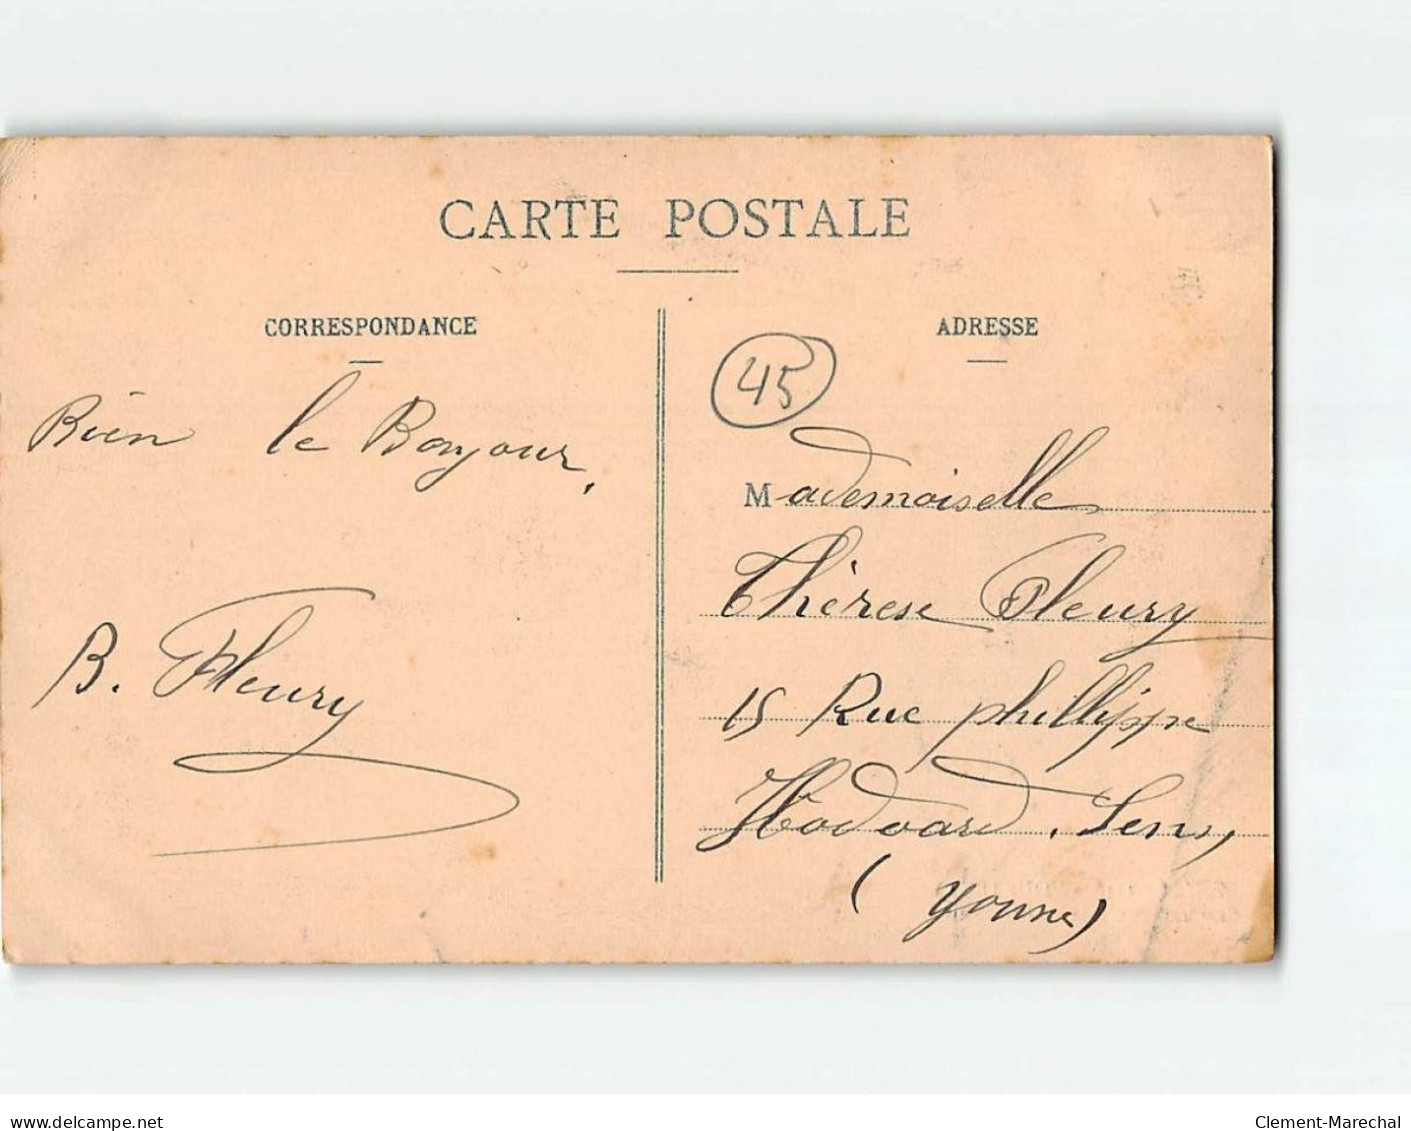 CARTE POSTALE
CORRESPONDANCE
ADRESSE
45
Bien le Bonjour.
B. Fleury
Mademoiselle
Thérèse Fleury
15 Rue phillippe
Hodoard. Sens,
(Yonne)
www.delcampe.net
Clement-Marechal